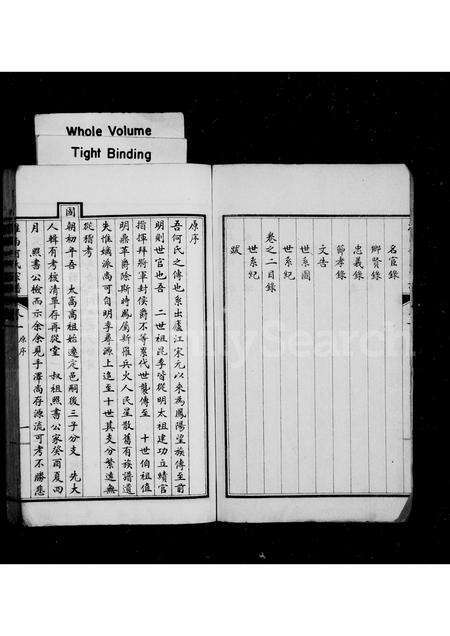 Whole Volume
Tight Binding
名宦錄
鄉賢錄
忠義錄
節孝錄
文告
世系圖
世系紀
卷之二目錄
世系紀
跋
原序
吾何氏之傳也系出廬江宋元以來為鳳陽望族傳至前
明則世官也吾 二世祖昆季皆從明太祖建功立績官
指揮拜將軍封侯爵不等累代世襲傳至 十世伯祖值
明鼎革爵除斯時鳳罹兵火人民星散舊有族譜遺
失惟孅派尚可自明季尋源上追至十世其支分繁遠無
從稽考
國朝初年吾 太高高祖始遷定邑嗣後三子分支 先大
人輯有考核清單存再從堂 叔祖照書公家癸酉夏四
月 照書公檢而示余余見手澤尚存源流可考不勝悲
原序